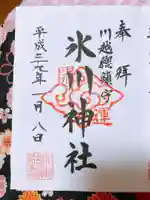 奉拝
川越總鎮守
氷川神社
平成二七年一月八日